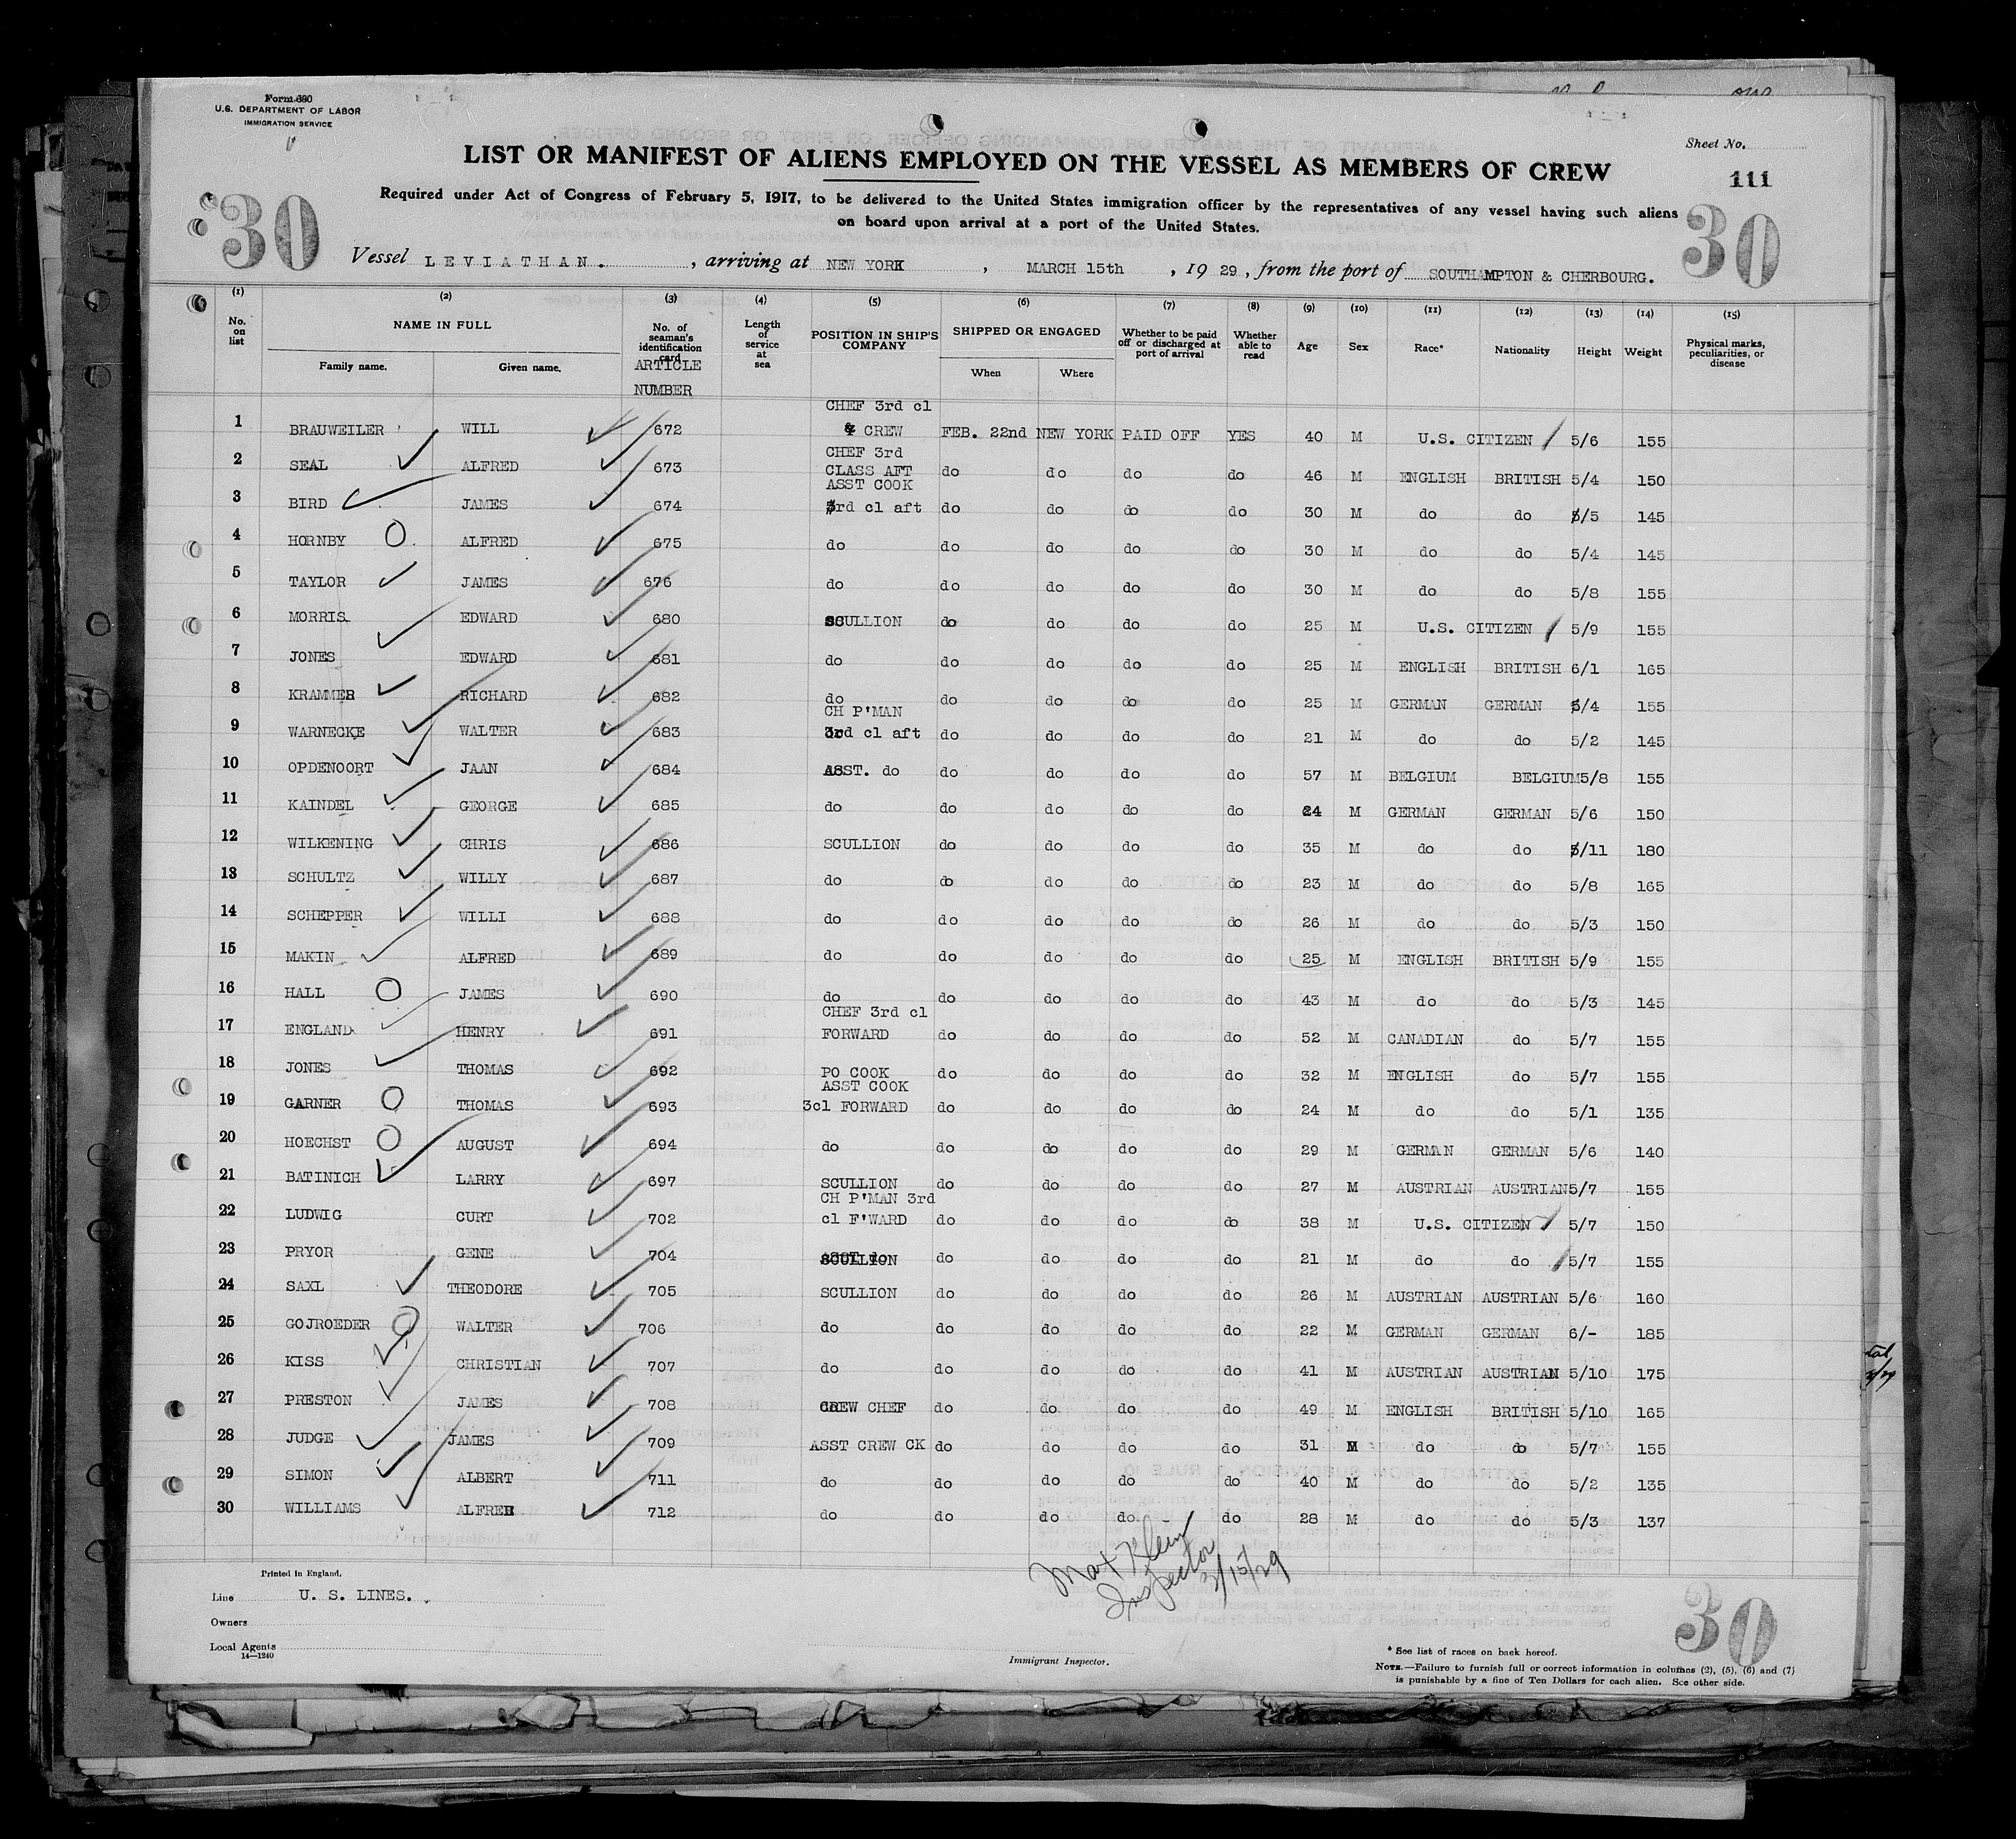 Form 680
U.S. DEPARTMENT OF LABOR
IMMIGRATION SERVICE
Sheet No.
111
LIST OR MANIFEST OF ALIENS EMPLOYED ON THE VESSEL AS MEMBERS OF CREW
30
30
Required under Act of Congress of February 5, 1917, to be delivered to the United States immigration officer by the representatives of any vessel having such aliens
on board upon arrival at a port of the United States.
Vessel LEVIATHAN. , arriving at NEW YORK , MARCH 15th , 19 29, from the port of SOUTHAMPTON & CHERBOURG.
(1) (2) (3) (4) (5) (6) (7) (8) (9) (10) (11) (12) (13) (14) (15)
No. on list NAME IN FULL Family name. Given name. No. of seaman's identification card ARTICLE NUMBER Length of service at sea POSITION IN SHIP'S COMPANY SHIPPED OR ENGAGED When Where Whether to be paid off or discharged at port of arrival Whether able to read Age Sex Race* Nationality Height Weight Physical marks, peculiarities, or disease
1 BRAUWEILER WILL 672 CHEF 3rd cl & CREW FEB. 22nd NEW YORK PAID OFF YES 40 M U.S. CITIZEN 5/6 155
2 SEAL ALFRED 673 CHEF 3rd CLASS AFT do do do do 46 M ENGLISH BRITISH 5/4 150
3 BIRD JAMES 674 ASST COOK 3rd cl aft do do do do 30 M do do 5/5 145
4 HORNBY ALFRED 675 do do do do do 30 M do do 5/4 145
5 TAYLOR JAMES 676 do do do do do 30 M do do 5/8 155
6 MORRIS EDWARD 680 SCULLION do do do do 25 M U.S. CITIZEN 5/9 155
7 JONES EDWARD 681 do do do do do 25 M ENGLISH BRITISH 6/1 165
8 KRAMMER RICHARD 682 do do do do do 25 M GERMAN GERMAN 5/4 155
9 WARNECKE WALTER 683 CH P'MAN 3rd cl aft do do do do 21 M do do 5/2 145
10 OPDENOORT JAAN 684 ASST. do do do do do 57 M BELGIUM BELGIUM 5/8 155
11 KAINDEL GEORGE 685 do do do do do 24 M GERMAN GERMAN 5/6 150
12 WILKENING CHRIS 686 SCULLION do do do do 35 M do do 5/11 180
13 SCHULTZ WILLY 687 do do do do do 23 M do do 5/8 165
14 SCHEPPER WILLI 688 do do do do do 26 M do do 5/3 150
15 MAKIN ALFRED 689 do do do do do 25 M ENGLISH BRITISH 5/9 155
16 HALL JAMES 690 do do do do do 43 M do do 5/3 145
17 ENGLAND HENRY 691 CHEF 3rd cl FORWARD do do do do 52 M CANADIAN do 5/7 155
18 JONES THOMAS 692 PO COOK do do do do 32 M ENGLISH do 5/7 155
19 GARNER THOMAS 693 ASST COOK 3cl FORWARD do do do do 24 M do do 5/1 135
20 HOECHST AUGUST 694 do do do do do 29 M GERMAN GERMAN 5/6 140
21 BATINICH LARRY 697 SCULLION do do do do 27 M AUSTRIAN AUSTRIAN 5/7 155
22 LUDWIG CURT 702 CH P'MAN 3rd cl F'WARD do do do do 38 M U.S. CITIZEN 5/7 150
23 PRYOR GENE 704 SCULLION do do do do 21 M do do 5/7 155
24 SAXL THEODORE 705 SCULLION do do do do 26 M AUSTRIAN AUSTRIAN 5/6 160
25 GOJROEDER WALTER 706 do do do do do 22 M GERMAN GERMAN 6/- 185
26 KISS CHRISTIAN 707 do do do do do 41 M AUSTRIAN AUSTRIAN 5/10 175
27 PRESTON JAMES 708 CREW CHEF do do do do 49 M ENGLISH BRITISH 5/10 165
28 JUDGE JAMES 709 ASST CREW CK do do do do 31 M do do 5/7 155
29 SIMON ALBERT 711 do do do do do 40 M do do 5/2 135
30 WILLIAMS ALFRED 712 do do do do do 28 M do do 5/3 137
Max Klein
Inspector
3/15/29
Printed in England.
Line U. S. LINES.
Owners
Local Agents
14—1240
Immigrant Inspector.
30
* See list of races on back hereof.
NOTE.—Failure to furnish full or correct information in columns (2), (5), (6) and (7)
is punishable by a fine of Ten Dollars for each alien. See other side.